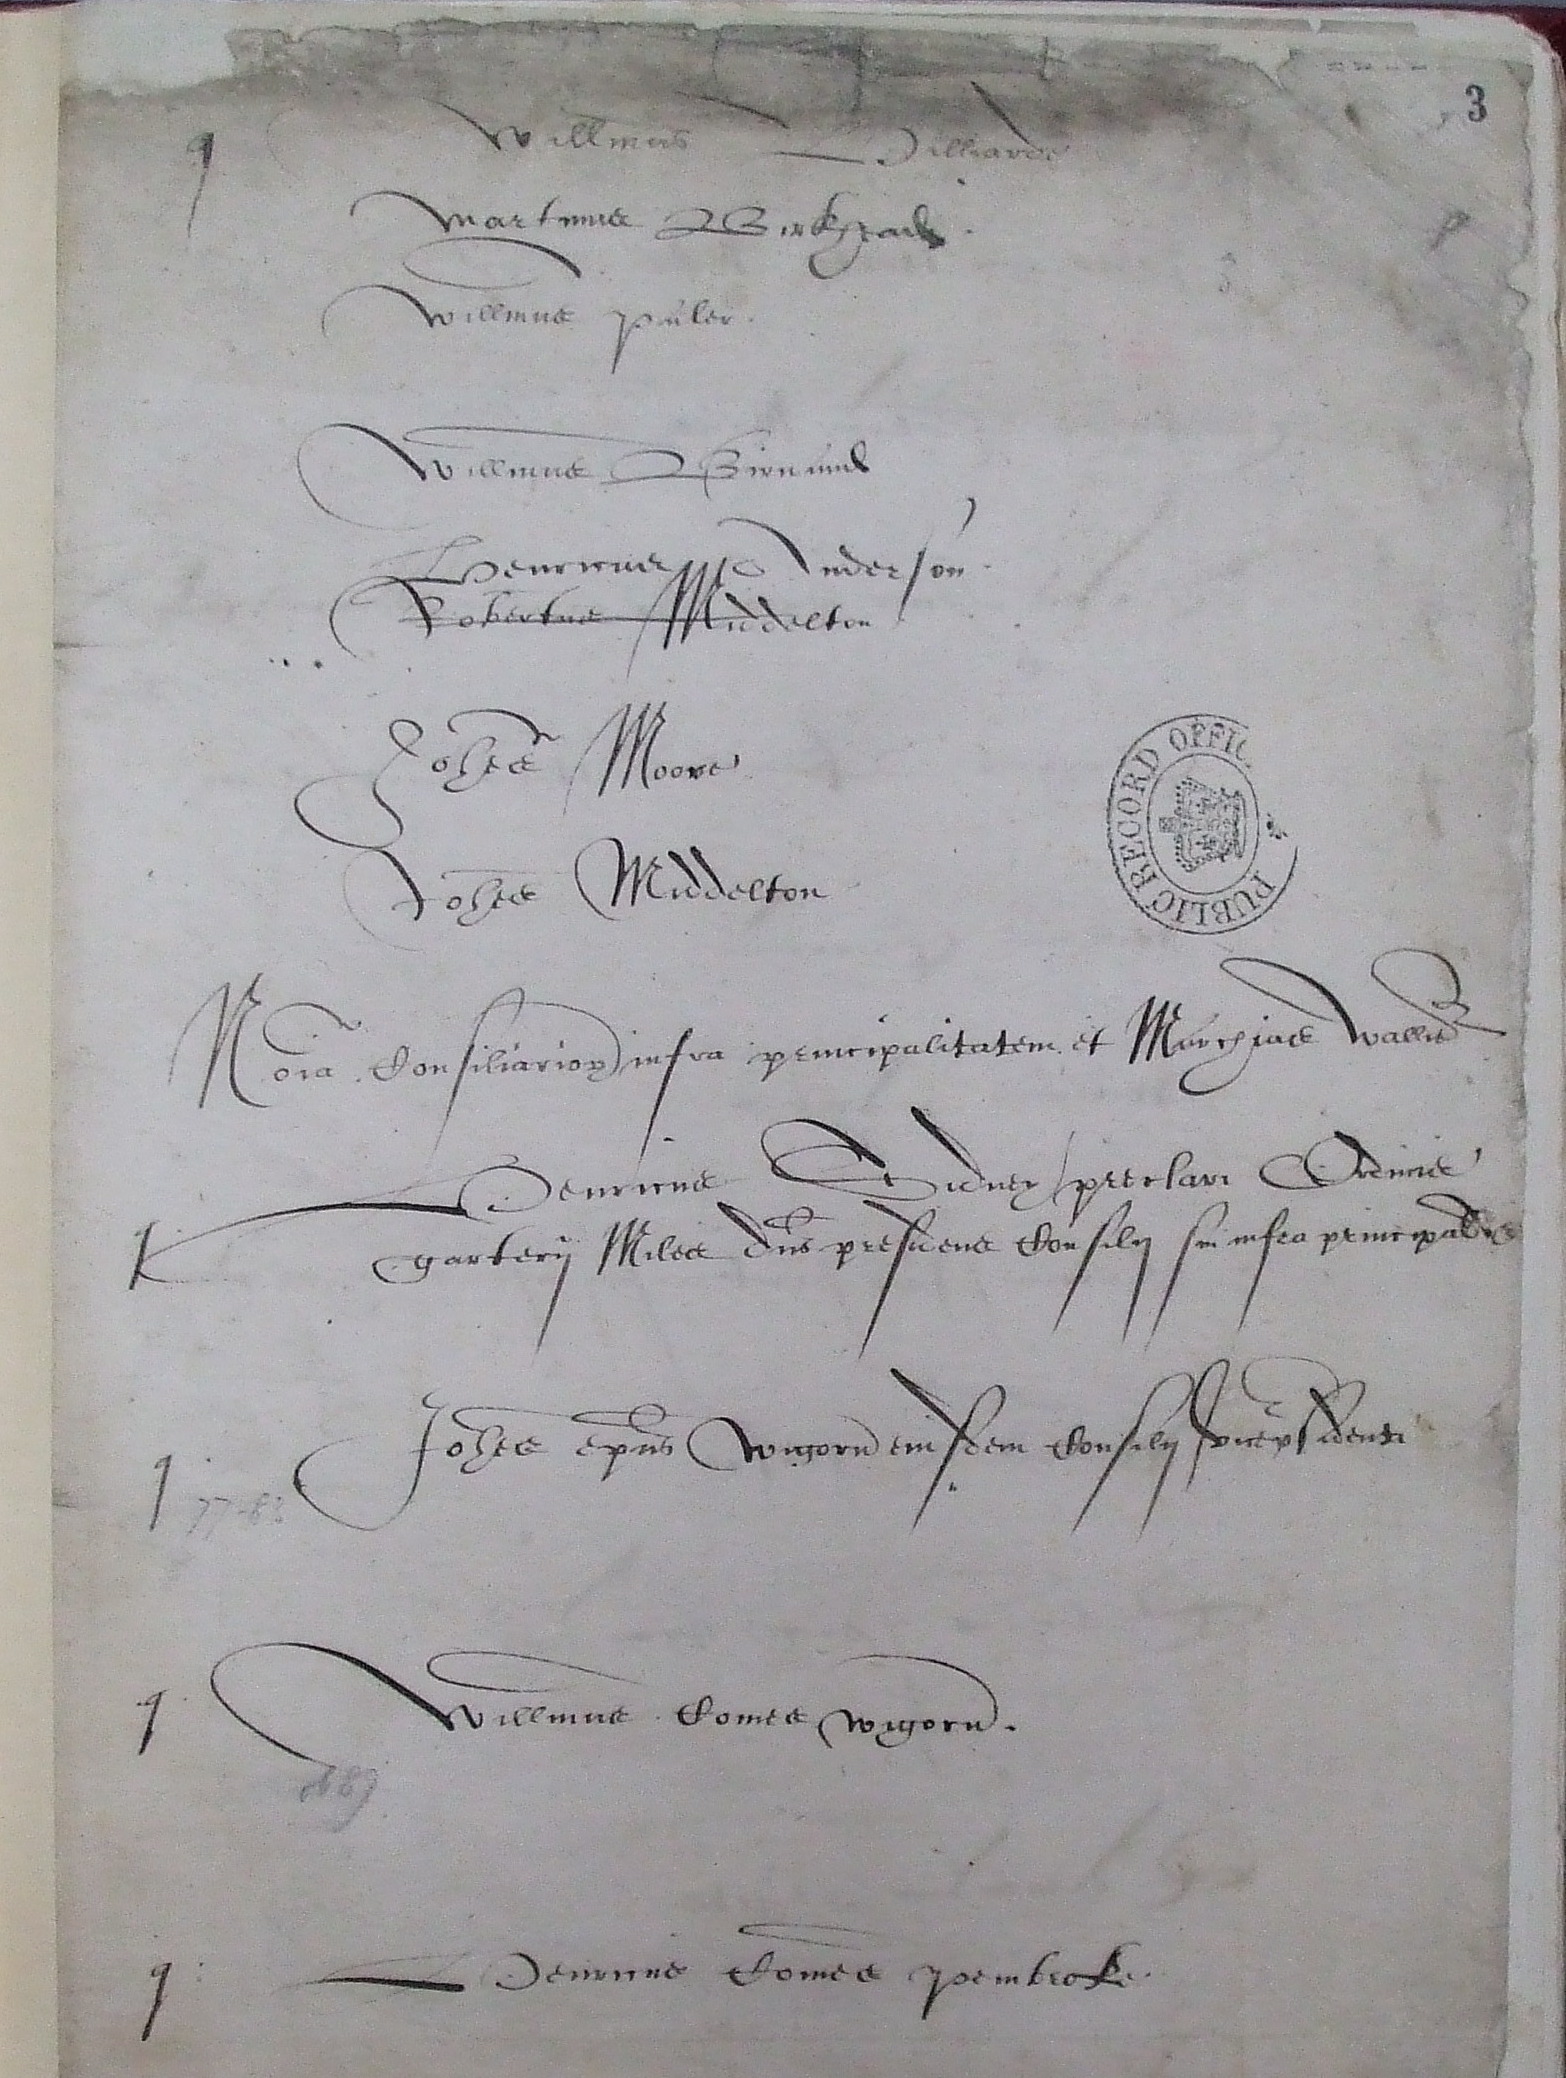 3
q Willmus Hilliarde
Martinus Birkhead
Willmus Paler
Willmus Birnand
Henricus Anderson
Robertus Middelton
Johes Moore
Johes Middelton
PUBLIC RECORD OFFIC
Noia Consiliarior infra principalitatem et Marchias Wallie
Henricus Sidney preclari Ordinis
k garterij Miles dns presidens Consilij sui infra principal
q Johes epus Wigorn eiusdem Consilij vicepsidens
77-82
q Willmus Comes Wigorn
89
q Henricus Comes Pembroke